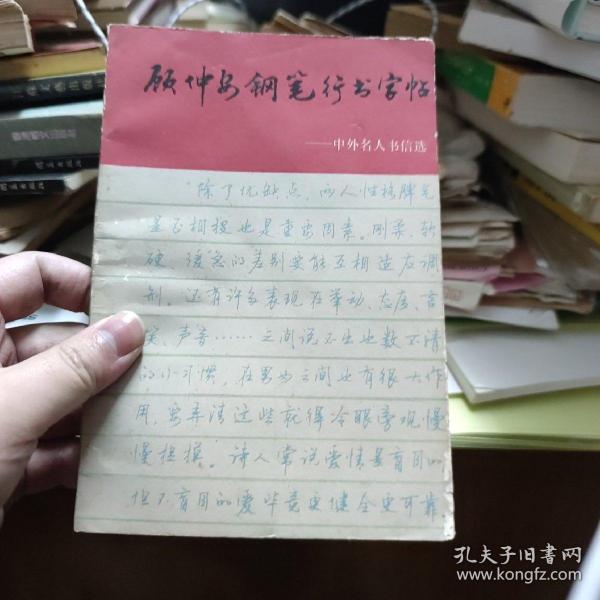 顾仲安钢笔行书字帖
——中外名人书信选
除了优缺点,两人性格脾气
是否相投也是重要因素。刚柔、软
硬、缓急的差别要能互相适应调
剂。还有许多表现在举动、态度、言
笑、声音……之间说不出也数不清
的小习惯,在男女之间也有很大作
用,要弄清这些就得冷眼旁观慢
慢揣摸。诗人常说爱情是盲目的
但不盲目的爱毕竟更健全更可靠
孔夫子旧书网
www.kongfz.com